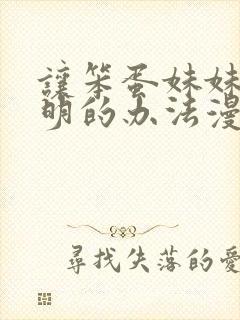 讓笨蛋妹妹
明的办法漫
尋找失落的愛